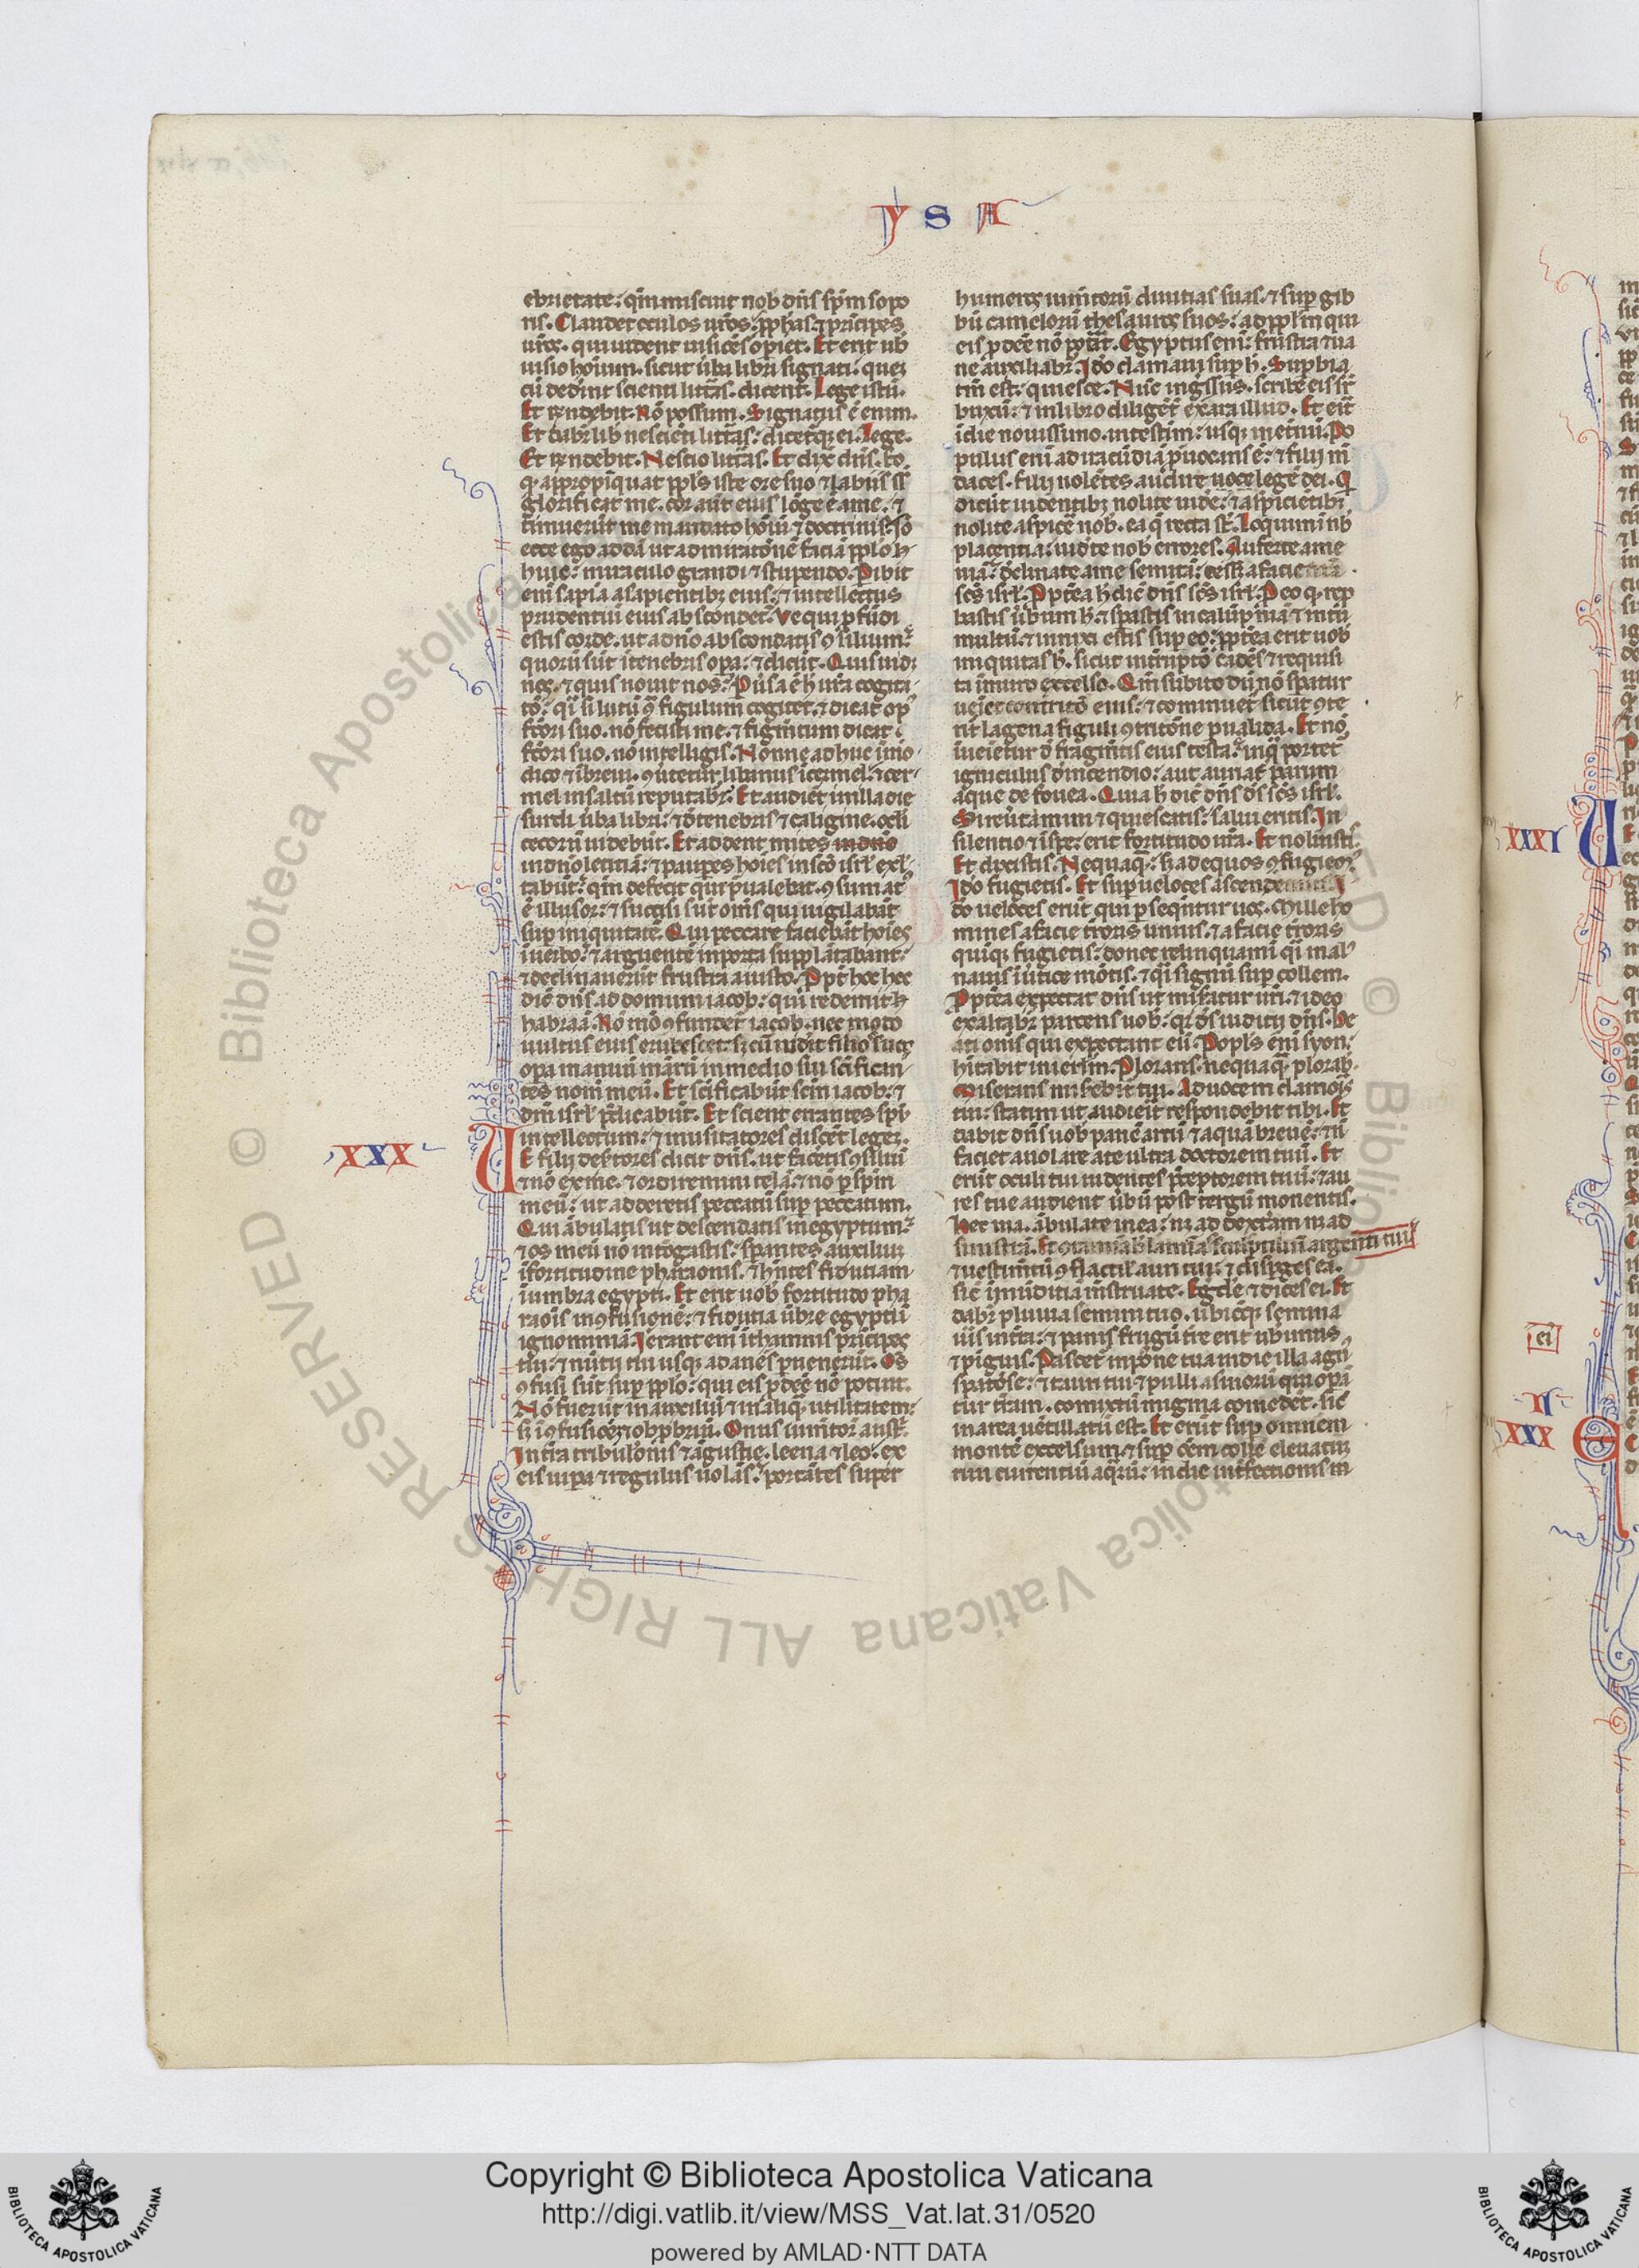 y s A
ebrietate: qm̄ miscuit nob dn̄s sp̄m sopo
ris. Claudet oculos ur̄os: ꝓph̄as ⁊ pͥncipes
ur̄os. qui uident uisiōēs opiet. Et erit uob
uisio hoīum. sicut ūba libri signati. quez
cū dederint scienti litt̄as. dicent. Lege istū.
Et rn̄debit. Nō possum. Signatus ē enim.
Et dabr̄ lib̄ nescieti litt̄as: dicet̄qz ei. Lege.
Et rn̄debit. Nescio litt̄as. Et dix̄ dn̄s. Eo
qͦ appropīquat ppl̄s iste ore suo ⁊ labiis ss
glorificat me. cor aut̄ eius lōge ē a me. ⁊
timuerūt me mandato hoīū ⁊ doctrinis: iō
ecce ego addā ut admiratōnē faciā ppl̄o h̄
huic: miraculo grandi ⁊ stupendo. Pibit
enī sapīa a sapientibz eius: ⁊ intellectus
prudentiū eius abscondet̄. Ve qui ꝓfūdi
estis corde. ut a dn̄o abscondatis ꝯsilium:
quorū sūt ī tenebris opa: ⁊ dicūt. Quis uidꝫ
nos. ⁊ quis nouit nos: Puˉsa ē h̄ ur̄a cogita
tō: qͣi si lutū ꝯ̄ figulum cogitet. ⁊ dicat op
fc̄ori suo. nō fecisti me: ⁊ figm̄tum dicat
fc̄ori suo. nō intelligis. Nonne adhuc ī mō
dico ⁊ ī breui. ꝯūtetur libanus ī cermel. ⁊ cer
mel in saltū reputabr̄: Et audiēt in illa die
surdi ūba libri: ⁊ d̄ tenebris ⁊ caligine. ocl̄i
cecorū uidebūt. Et addent mites in dn̄o
in dn̄o letitiā: ⁊ pauꝑes hoīes in sc̄o isrl̄ exl̄
tabūt: qm̄ defecit qui p̄ualebat. ꝯsumat
ē illusor: ⁊ succisi sūt om̄s qui uigilabāt
sup iniquitatē. Qui peccare faciebāt hoīes
ī uerbo: ⁊ arguentē in porta supplātabant:
⁊ declinauerūt frustra a iusto. Ppt̄ hoc hec
dic̄ dn̄s ad domum iacob: qui redemit h̄
habraā. Nō mō ꝯfundet̄ iacob. nec modo
uultus eius erubescet: sꝫ cū uidit filios suos
opa manuū mearū in medio sui sc̄ifican
tes nom̄ meū. Et sc̄ificabūt sc̄m iacob: ⁊
dm̄ isrl̄ p̄dicabūt. Et scient errantes spū
intellectum: ⁊ musitatores discēt legez.
XXX
UE filij des̄tores dicit dn̄s. ut facetis ꝯsiliū
⁊ nō ex me. ⁊ ordiremini telā: ⁊ nō ꝑ spm̄
meū: ut adderetis peccatū sup peccatum.
Qui ābulatis ut descendatis in egyptum:
⁊ os meū nō int̄rogastis: spantes auxiliuz
ī fortitudine pharaonis. ⁊ hn̄tes fiduciam
ī umbra egypti. Et erit uob fortitudo pha
raōis in ꝯfusionē: ⁊ fiducia ūbre egypti
ignominiā. Jerant enī ī thamnis pͥncipes
tui: ⁊ nūtij tui usqz ad anes puenerūt. Os
ꝯfusi sūt sup ppl̄o: qui eis ꝓdēē nō potūt.
Nō fuerūt in auxiliū ⁊ in aliqͣ utilitatem:
sꝫ ī ꝯfusiōēz ⁊ obꝓbriū. Onus iumētor austͥ.
In tr̄a tribul̄onis ⁊ āgustie. leena ⁊ leo. ex
eis uipa ⁊ regulus uolās: portātes super
humeros iumētorū diuitias suas. ⁊ sup gib
bū camelorū thesauros suos: ad ppl̄m qui
eis ꝓdeē nō pot̄it. Egyptus enī: frustra ⁊ ua
ne auxiliabr̄. Ido clamaui sup h̄. Supbia
tm̄ est: quiesce. Nūc ingr̄ssus. scribe eis sr̄
buxū: ⁊ in libro diligēt̄ exara illud. Et erit
ī die nouissimo. in testim̄: usqz in et̄nū. Po
pulus enī ad iracūdiā ꝓuocans ē: ⁊ filij m̄
daces. filij uolētes audire uoce legē dei. Q
dicūt uidentibz nolite uidē: ⁊ aspicietibz
nolite aspicē nob. ea q̄ recta st̄. Loquimi nb
placentia: uidete nob errores. Auferte a me
uiā: declinate a me semitā: cesset a facie nr̄a
sc̄s isrl̄. Pptēa h̄ dic̄ dn̄s sc̄s isrl̄. P eo qͦ rep
bastis ūbum h̄: ⁊ spastis in calūpniā ⁊ tmūl
multū: ⁊ innixi estis sup eo: ꝓptēa erit uob
iniquitas h̄. sicut int̄ruptō cadēs ⁊ requisi
ta ī muro excelso. Qm̄ subito dū nō spatur
ueīet contritō eius: ⁊ cominuet̄ sicut ꝯte
rit̄ lagena figuli ꝯtritōne pualida. Et nō
īueietur d̄ fragm̄tis eius testa: ī q̄ portet̄
igniculus d̄ incendio: aut auriat̄ parum
aque de fouea. Quia h̄ dic̄ dn̄s ds̄ sc̄s isrl̄.
Si reūtamini ⁊ quiescatis: salui eritis. In
silentio ⁊ ī spe: erit fortitudo ur̄a. Et noluistis.
Et dixistis. Nequaqͣ: sꝫ ad equos ꝯfugiem᷒.
Ido fugietis. Et sup ueloces ascendemus. I
do ueloces erūt qui ꝑseqūntur uos. Mille ho
mines a facie t̄roris unius. ⁊ a facie t̄roris
quīqꝫ fugietis: donec relinquamī qͣi mal᷒
nauis ī uertice mōtis. ⁊ qͣi signū sup collem.
Pptēa expectat dn̄s ut mis̄eatur ur̄i: ⁊ ideo
exaltabr̄ parcens uob: qͣ ds̄ iudicij dn̄s. Be
ati om̄s qui expectant eū. Popl̄s enī syon:
hītabit in ier̄l̄m. Plorans. nequaqͣ plorab.
Miserans mis̄ebit̄ tui. Ad uocem clamoris
tui: statim ut audierit respondebit tibi. Et
dabit dn̄s uob panē artū ⁊ aquā breuē: ⁊ n̄
faciet auolare a te ultra doctorem tuū. Et
erūt oculi tui uidentes p̄ceptorem tuū: ⁊ au
res tue audient ūbū post tergū monentis.
Hec uia. ābulate in ea: nꝫ ad dext̄am nꝫ ad
sinistrā. Et ꝯtaminab̄ lamīas sculptiliū argenti tui:
⁊ uestim̄tū ꝯflactil̄ auri tui: ⁊ dispges ea.
sic̄ īmūditiā mēstruate. Egrede ⁊ dices ei. Et
dabr̄ pluuia semini tuo. ubicūqꝫ semīa
uis in tr̄a: ⁊ panis frugū tr̄e erit ub̄rimus
⁊ piguis. Pascet̄ in poss̄ōne tua in die illa agn᷒
spatiose: ⁊ tauri tui ⁊ pulli asinorū qui opā
tur tr̄am. comixtū migma comedēt. sic̄
in area uētillatū est. Et erūt sup omnem
montē excelsum. ⁊ sup om̄em collē eleuatuz
riui currentiū aq̄rū: in die int̄fectionis m
XXXI
ei
II
XXX
© Biblioteca Apostolica Vaticana ALL RIGHTS RESERVED
Copyright © Biblioteca Apostolica Vaticana
http://digi.vatlib.it/view/MSS_Vat.lat.31/0520
powered by AMLAD·NTT DATA
BIBLIOTECA APOSTOLICA VATICANA
BIBLIOTECA APOSTOLICA VATICANA